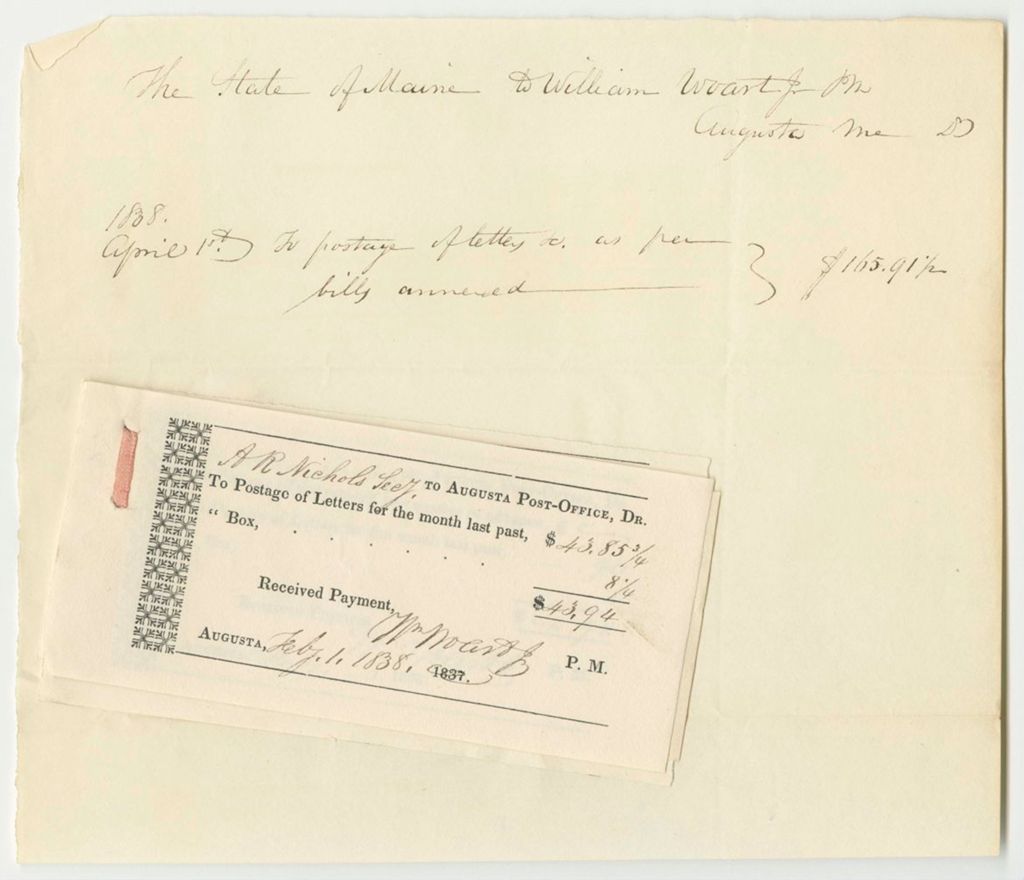 The State of Maine to William Woart Jr PM
Augusta Me Dr
1838.
April 1st. To postage of letters &c. as per
bills annexed
$165.91 1/2
A R Nichols Secy, to Augusta Post-Office, Dr.
To Postage of Letters for the month last past, $43.85 3/4
“ Box, . . . . . . 8 1/4
$43.94
Received Payment,
Wm Woart Jr P. M.
Augusta, Feby. 1. 1838. 1837.